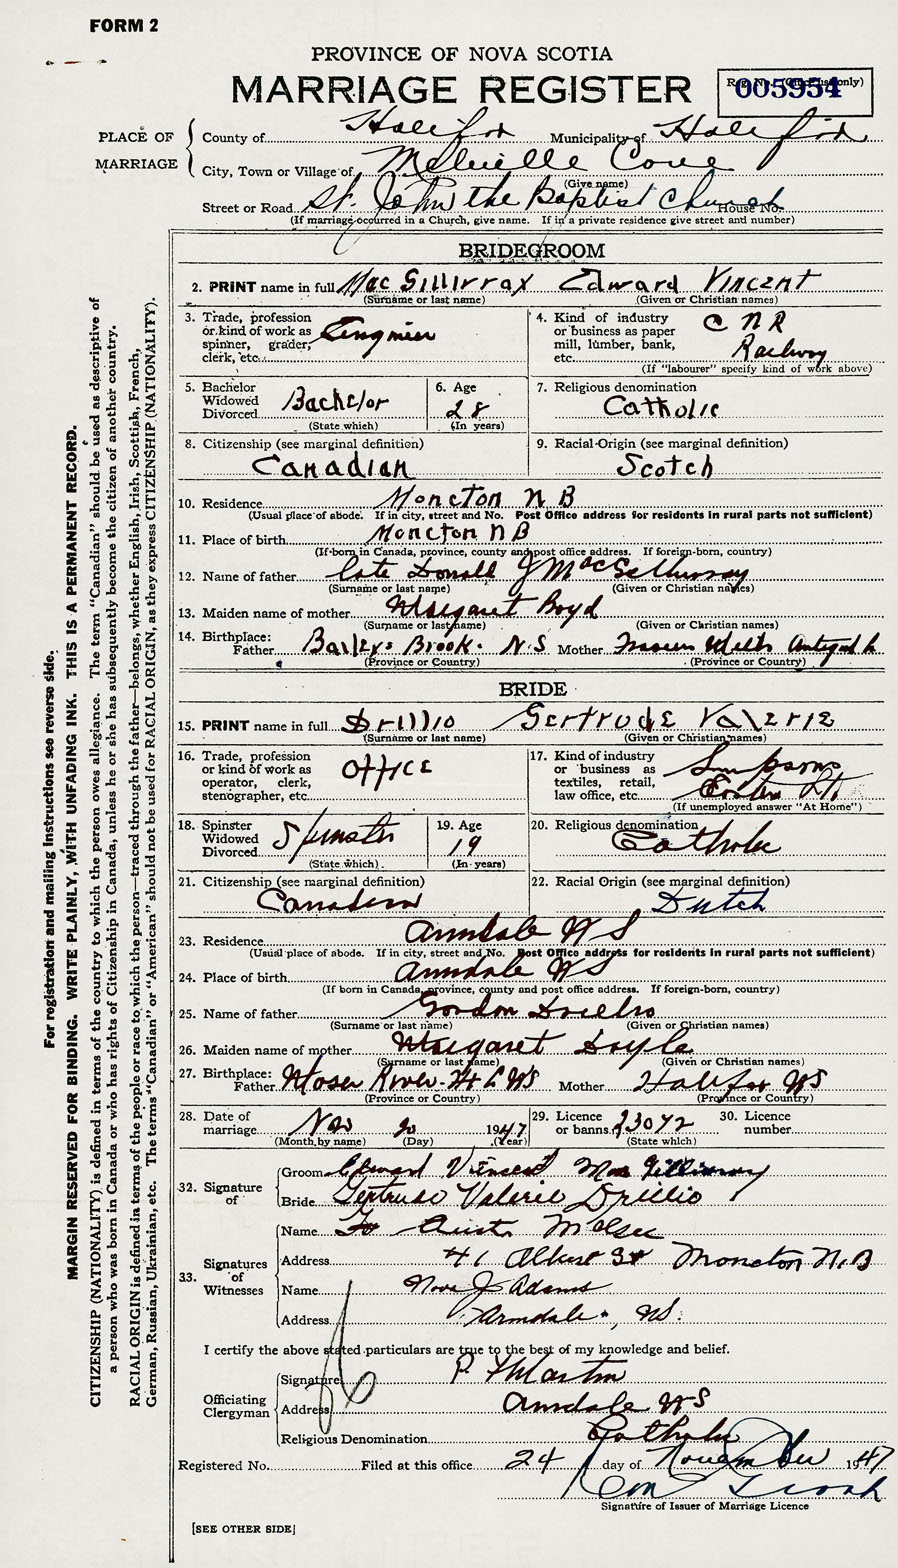 FORM 2
PROVINCE OF NOVA SCOTIA
MARRIAGE REGISTER
Reg. No. (Office use only)
005954
PLACE OF MARRIAGE
County of Halifax Municipality of Halifax
City, Town or Village of Melville Cove
(Give name)
Street or Road St. John the Baptist Church House No.
(If marriage occurred in a Church, give name. If in a private residence give street and number)
BRIDEGROOM
2. PRINT name in full MacGillivray Edward Vincent
(Surname or last name) (Given or Christian names)
3. Trade, profession or kind of work as spinner, grader, clerk, etc. Engineer
4. Kind of industry or business as paper mill, lumber, bank, etc. C N R Railway
(If "labourer" specify kind of work above)
5. Bachelor Widowed Divorced Bachelor
(State which)
6. Age 28
(In years)
7. Religious denomination
Catholic
8. Citizenship (see marginal definition)
Canadian
9. Racial Origin (see marginal definition)
Scotch
10. Residence Moncton N B
(Usual place of abode. If in city, street and No. Post Office address for residents in rural parts not sufficient)
11. Place of birth Moncton N B
(If born in Canada, province, county and post office address. If foreign-born, country)
12. Name of father late Donald J MacGillivray
(Surname or last name) (Given or Christian names)
13. Maiden name of mother Margaret Boyd
(Surname or last name) (Given or Christian names)
14. Birthplace: Father Baileys Brook. N.S Mother Mills
(Province or Country) (Province or Country)
BRIDE
15. PRINT name in full Drillio Gertrude Valerie
(Surname or last name) (Given or Christian names)
16. Trade, profession or kind of work as operator, clerk, stenographer, etc. Office
17. Kind of industry or business as textiles, retail, law office, etc. Simpsons Eastern Ltd
(If unemployed answer "At Home")
18. Spinster Widowed Divorced Spinster
(State which)
19. Age 19
(In years)
20. Religious denomination
Catholic
21. Citizenship (see marginal definition)
Canadian
22. Racial Origin (see marginal definition)
Dutch
23. Residence Armdale NS
(Usual place of abode. If in city, street and No. Post Office address for residents in rural parts not sufficient)
24. Place of birth Armdale NS
(If born in Canada, province, county and post office address. If foreign-born, country)
25. Name of father Gordon Drillio
(Surname or last name) (Given or Christian names)
26. Maiden name of mother Margaret Doyle
(Surname or last name) (Given or Christian names)
27. Birthplace: Father Moser River NS Mother Halifax NS
(Province or Country) (Province or Country)
28. Date of marriage Nov 20 1947
(Month by name) (Day) (Year)
29. Licence or banns 23072
(State which)
30. Licence number
32. Signature of
Groom Edward Vincent MacGillivray
Bride Gertrude Valerie Drillio
33. Signatures of Witnesses
Name Austin
Address 41 Albert St Moncton N.B
Name J Adams
Address Armdale, NS.
I certify the above stated particulars are true to the best of my knowledge and belief.
Officiating Clergyman
Signature P Martin
Address Armdale NS
Religious Denomination Catholic
Registered No. Filed at this office 24 day of November 1947
Signature of Issuer of Marriage Licence
[SEE OTHER SIDE]
For registration and mailing instructions see reverse side.
MARGIN RESERVED FOR BINDING. WRITE PLAINLY, WITH UNFADING INK. THIS IS A PERMANENT RECORD.
CITIZENSHIP (NATIONALITY) is defined in terms of the country to which the person owes allegiance. The term "Canadian" should be used as descriptive of
a person who was born in Canada or who has rights of Citizenship in Canada, unless he or she has subsequently become the citizen of another country.
RACIAL ORIGIN is defined in terms of the people or race to which the person—traced through the father—belongs, whether English, Irish, Scottish, French,
German, Russian, Ukrainian, etc. The terms "Canadian" or "American" should not be used for RACIAL ORIGIN, as they express CITIZENSHIP (NATIONALITY).